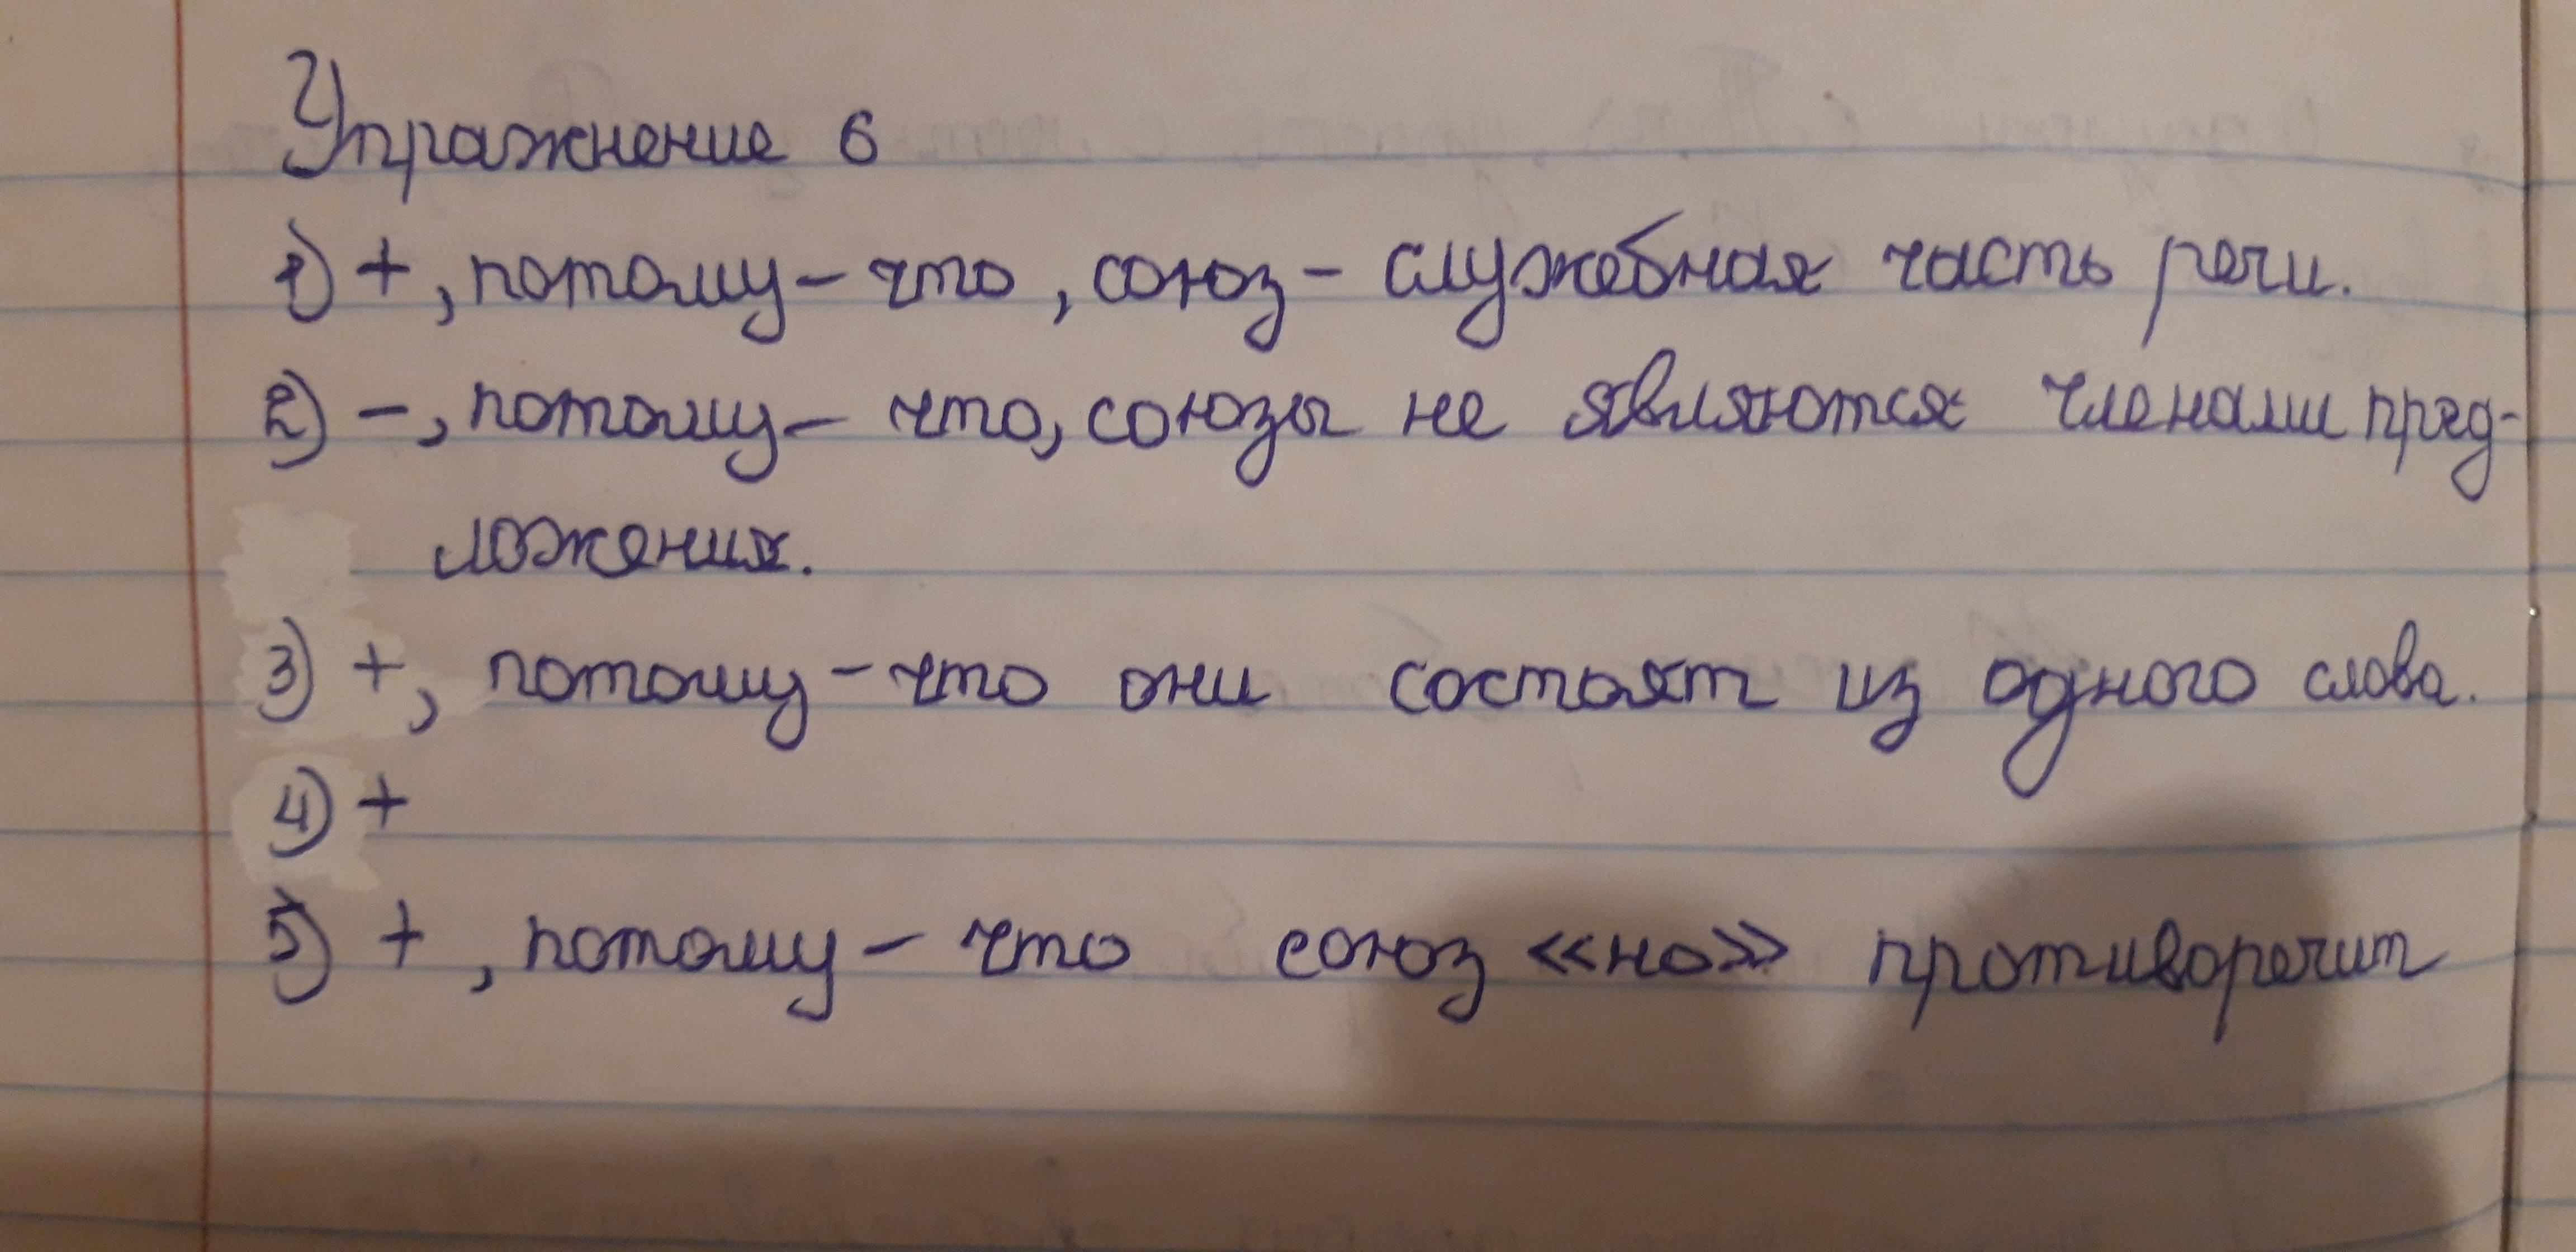 Упражнение 6
1) +, потому – что, союз – служебная часть речи.
2) –, потому – что, союзы не являются членами пред-
ложения.
3) +, потому – что они состоят из одного слова.
4) +
5) +, потому – что союз «но» противоречит